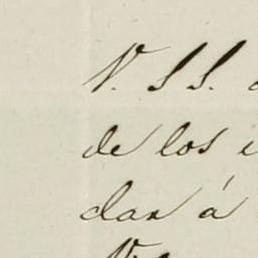 V. S S.
de los
dan á